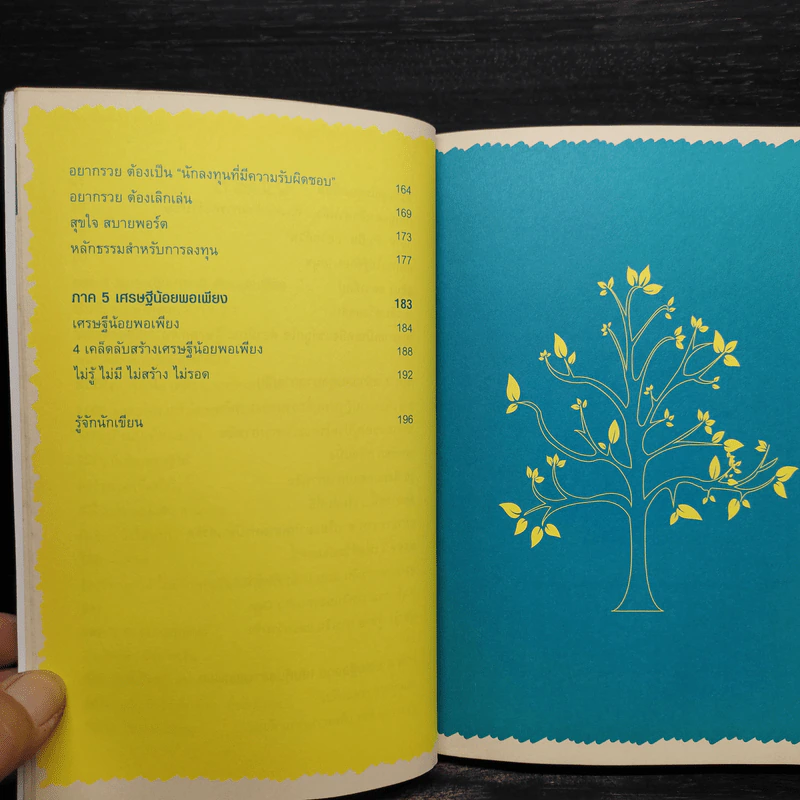 อยากรวย ต้องเป็น "นักลงทุนที่มีความรับผิดชอบ" 164
อยากรวย ต้องเลิกเล่น 169
สุขใจ สบายพอร์ต 173
หลักธรรมสำหรับการลงทุน 177
ภาค 5 เศรษฐีน้อยพอเพียง 183
เศรษฐีน้อยพอเพียง 184
4 เคล็ดลับสร้างเศรษฐีน้อยพอเพียง 188
ไม่รู้ ไม่มี ไม่สร้าง ไม่รอด 192
รู้จักนักเขียน 196